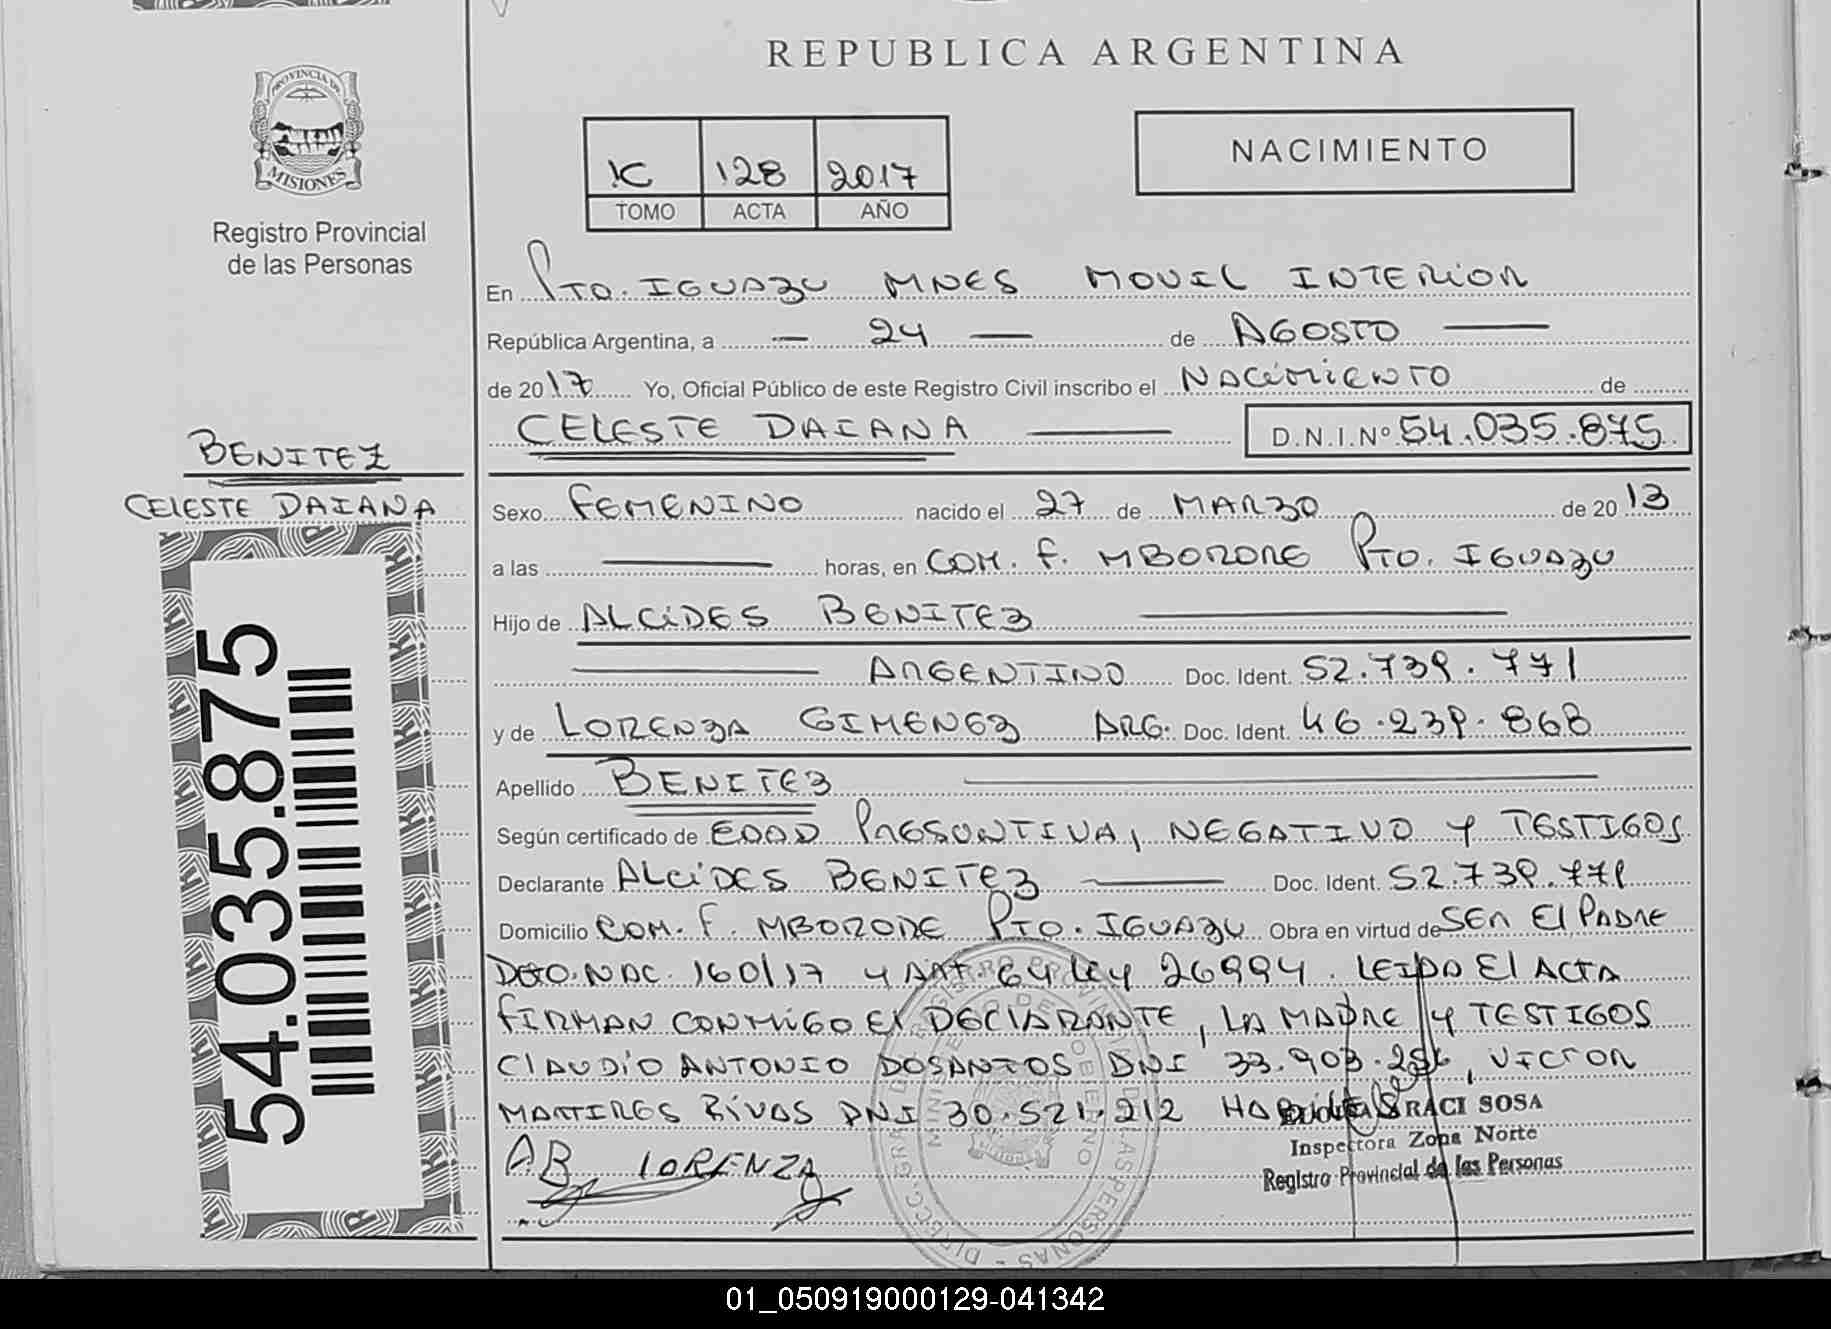 REPUBLICA ARGENTINA
PROVINCIA DE
MISIONES
Registro Provincial
de las Personas
1C 128 2017
TOMO ACTA AÑO
NACIMIENTO
En Pto. IGUAZU MNES MOVIL INTERIOR
República Argentina, a — 24 — de AGOSTO —
de 2017 Yo, Oficial Público de este Registro Civil inscribo el NACIMIENTO de
CELESTE DAIANA — D.N.I.Nº 54.035.875
BENITEZ
CELESTE DAIANA
54.035.875
Sexo FEMENINO nacido el 27 de MARZO de 2013
a las — horas, en COM. F. MBORORE Pto. IGUAZU
Hijo de ALCIDES BENITEZ —
— ARGENTINO Doc. Ident. 52.739.771
y de LORENZA GIMENEZ ARG. Doc. Ident. 46.239.868
Apellido BENITEZ —
Según certificado de EDAD PRESUNTIVA, NEGATIVO Y TESTIGOS
Declarante ALCIDES BENITEZ — Doc. Ident. 52.739.771
Domicilio COM. F. MBORORE Pto. IGUAZU Obra en virtud de SER El PADRE
DTO. NAC. 160/17 Y ART 64 Ley 26994. LEIDO El ACTA
FIRMAN CONMIGO El DEClARANTE, LA MADRE Y TESTIGOS
ClAUDIO ANTONIO DOSANTOS DNI 33.903., VICTOR
MARTIRES RIVAS DNI 30.521.212 HABILES
ARACI SOSA
Inspectora Zona Norte
Registro Provincial de las Personas
AB lORENZA
01_050919000129-041342